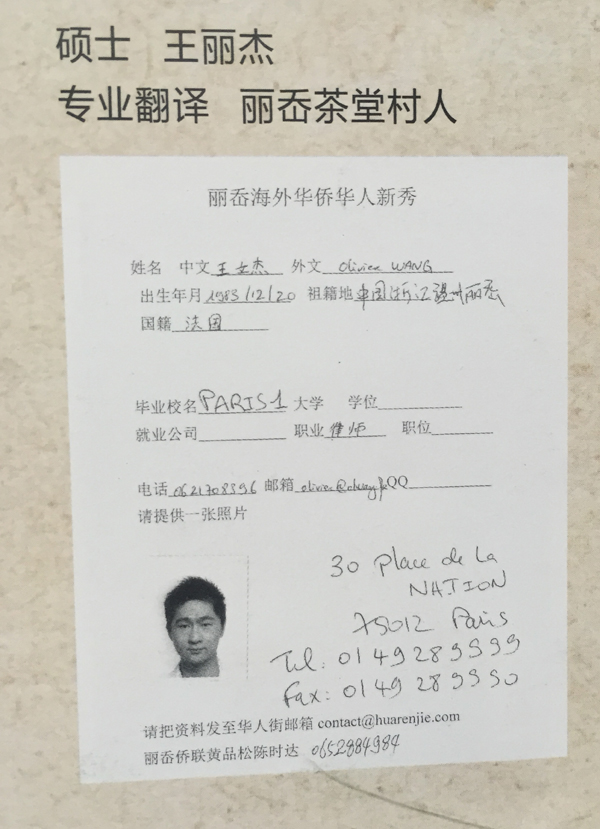 硕士 王丽杰
专业翻译 丽岙茶堂村人
丽岙海外华侨华人新秀
姓名 中文 王 杰 外文 Olivier WANG
出生年月 1983/12/20 祖籍地 中国浙江温州丽岙
国籍 法国
毕业校名 PARIS 1 大学 学位
就业公司 职业 律师 职位
电话 0621708396 邮箱 QQ
请提供一张照片
30 Place de la
NATION
75012 Paris
Tel: 01 49 289999
Fax: 01 49 289990
请把资料发至华人街邮箱 contact@huarenjie.com
丽岙侨联黄品松陈时达 0652884984